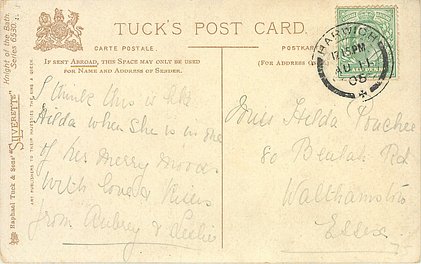 TUCK'S POST CARD.
CARTE POSTALE.
POSTKAR
IF SENT ABROAD, THIS SPACE MAY ONLY BE USED
FOR NAME AND ADDRESS OF SENDER.
(FOR ADDRESS O
HARWICH
12.15 PM
AU 11
Knight of the Bath
Series 6530.
Raphael Tuck & Sons' "SILVERETTE"
AND PUBLISHERS TO THEIR MAJESTIES THE KING & QUEEN
I think this is like
Hilda when she is in one
of her merry moods
With love & Kisses
from Aubrey & Leslie
Miss Hilda
80 Beulah Rd
Walthamstow
Essex.